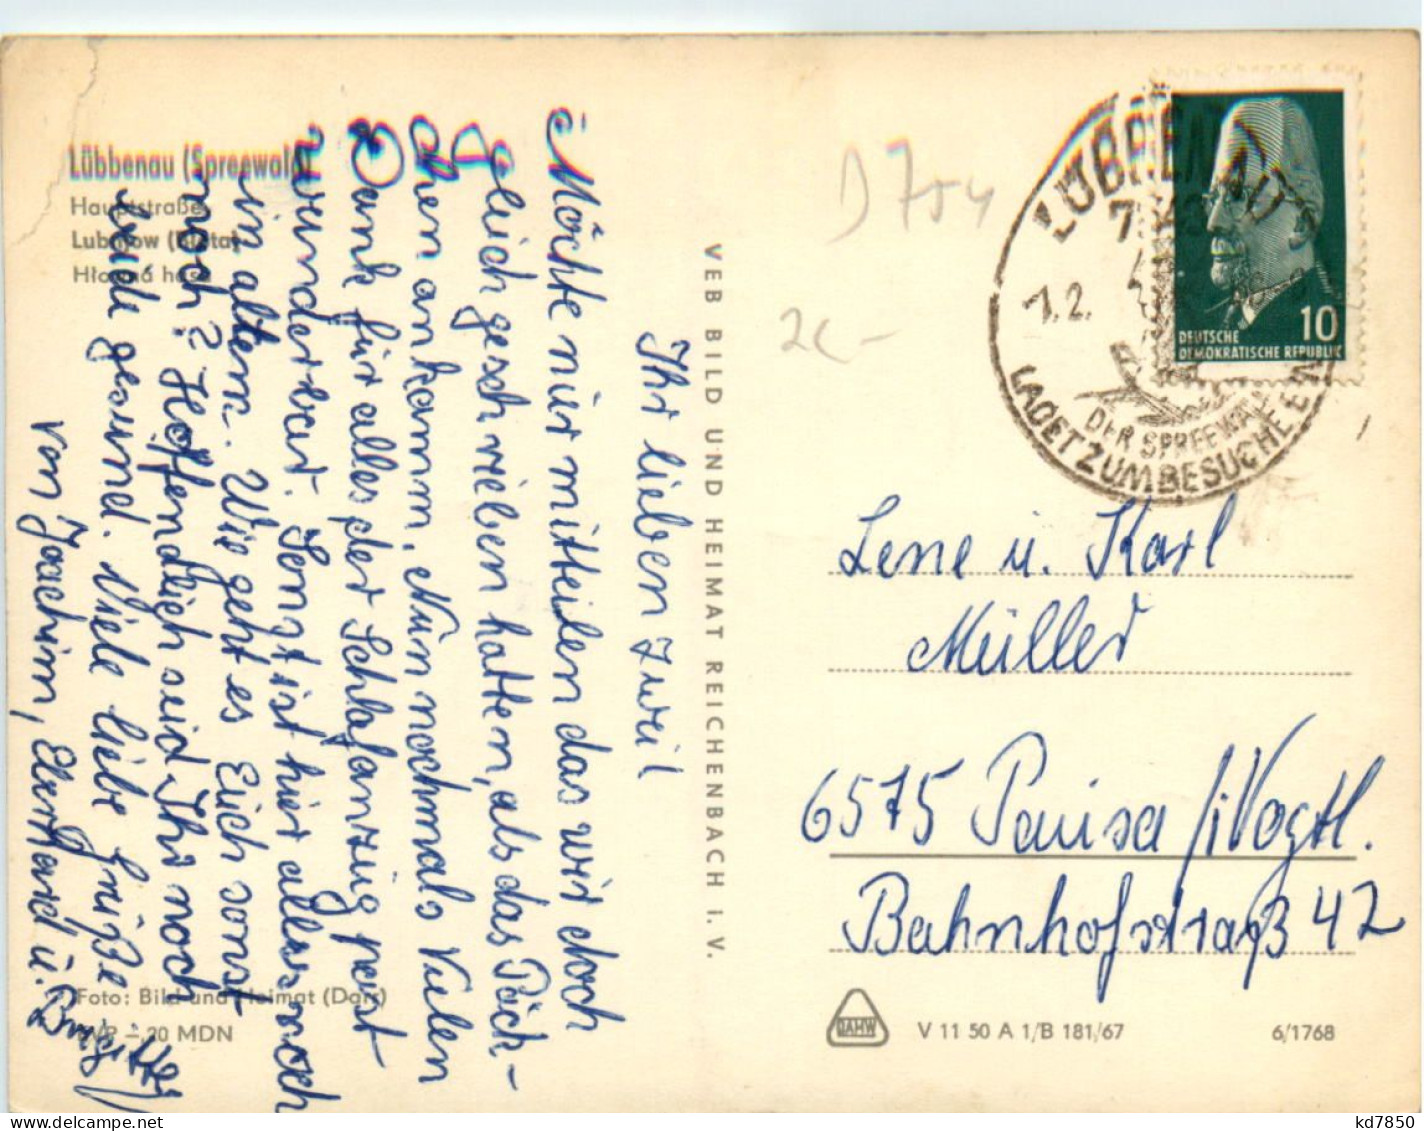 Lübbenau (Spreewald)
Hauptstraße
Foto: Bild und Heimat (Darr)
– 20 MDN
Ihr lieben zwei!
Möchte nur mitteilen das wir doch
gleich geschrieben hatten, als das Päck-
chen ankamm. Nun nochmals Vielen
Dank für alles der Schlafanzug past
wunderbar. Sonst ist hier alles noch
im altem. Wie geht es Euch sonst
noch? Hoffendlich seid Ihr noch
gesund. Viele liebe Grüße
von Joachim, Eberhard u. Brigitte
VEB BILD UND HEIMAT REICHENBACH I. V.
D 754
LÜBBENAU
7.2.
DER SPREEWALD
LADET ZUM BESUCHE EIN
10
DEUTSCHE
DEMOKRATISCHE REPUBLIK
Lene u. Karl
Müller
6575 Pausa /Vogtl.
Bahnhofstraß 42
V 11 50 A 1/B 181/67
6/1768
kd7850